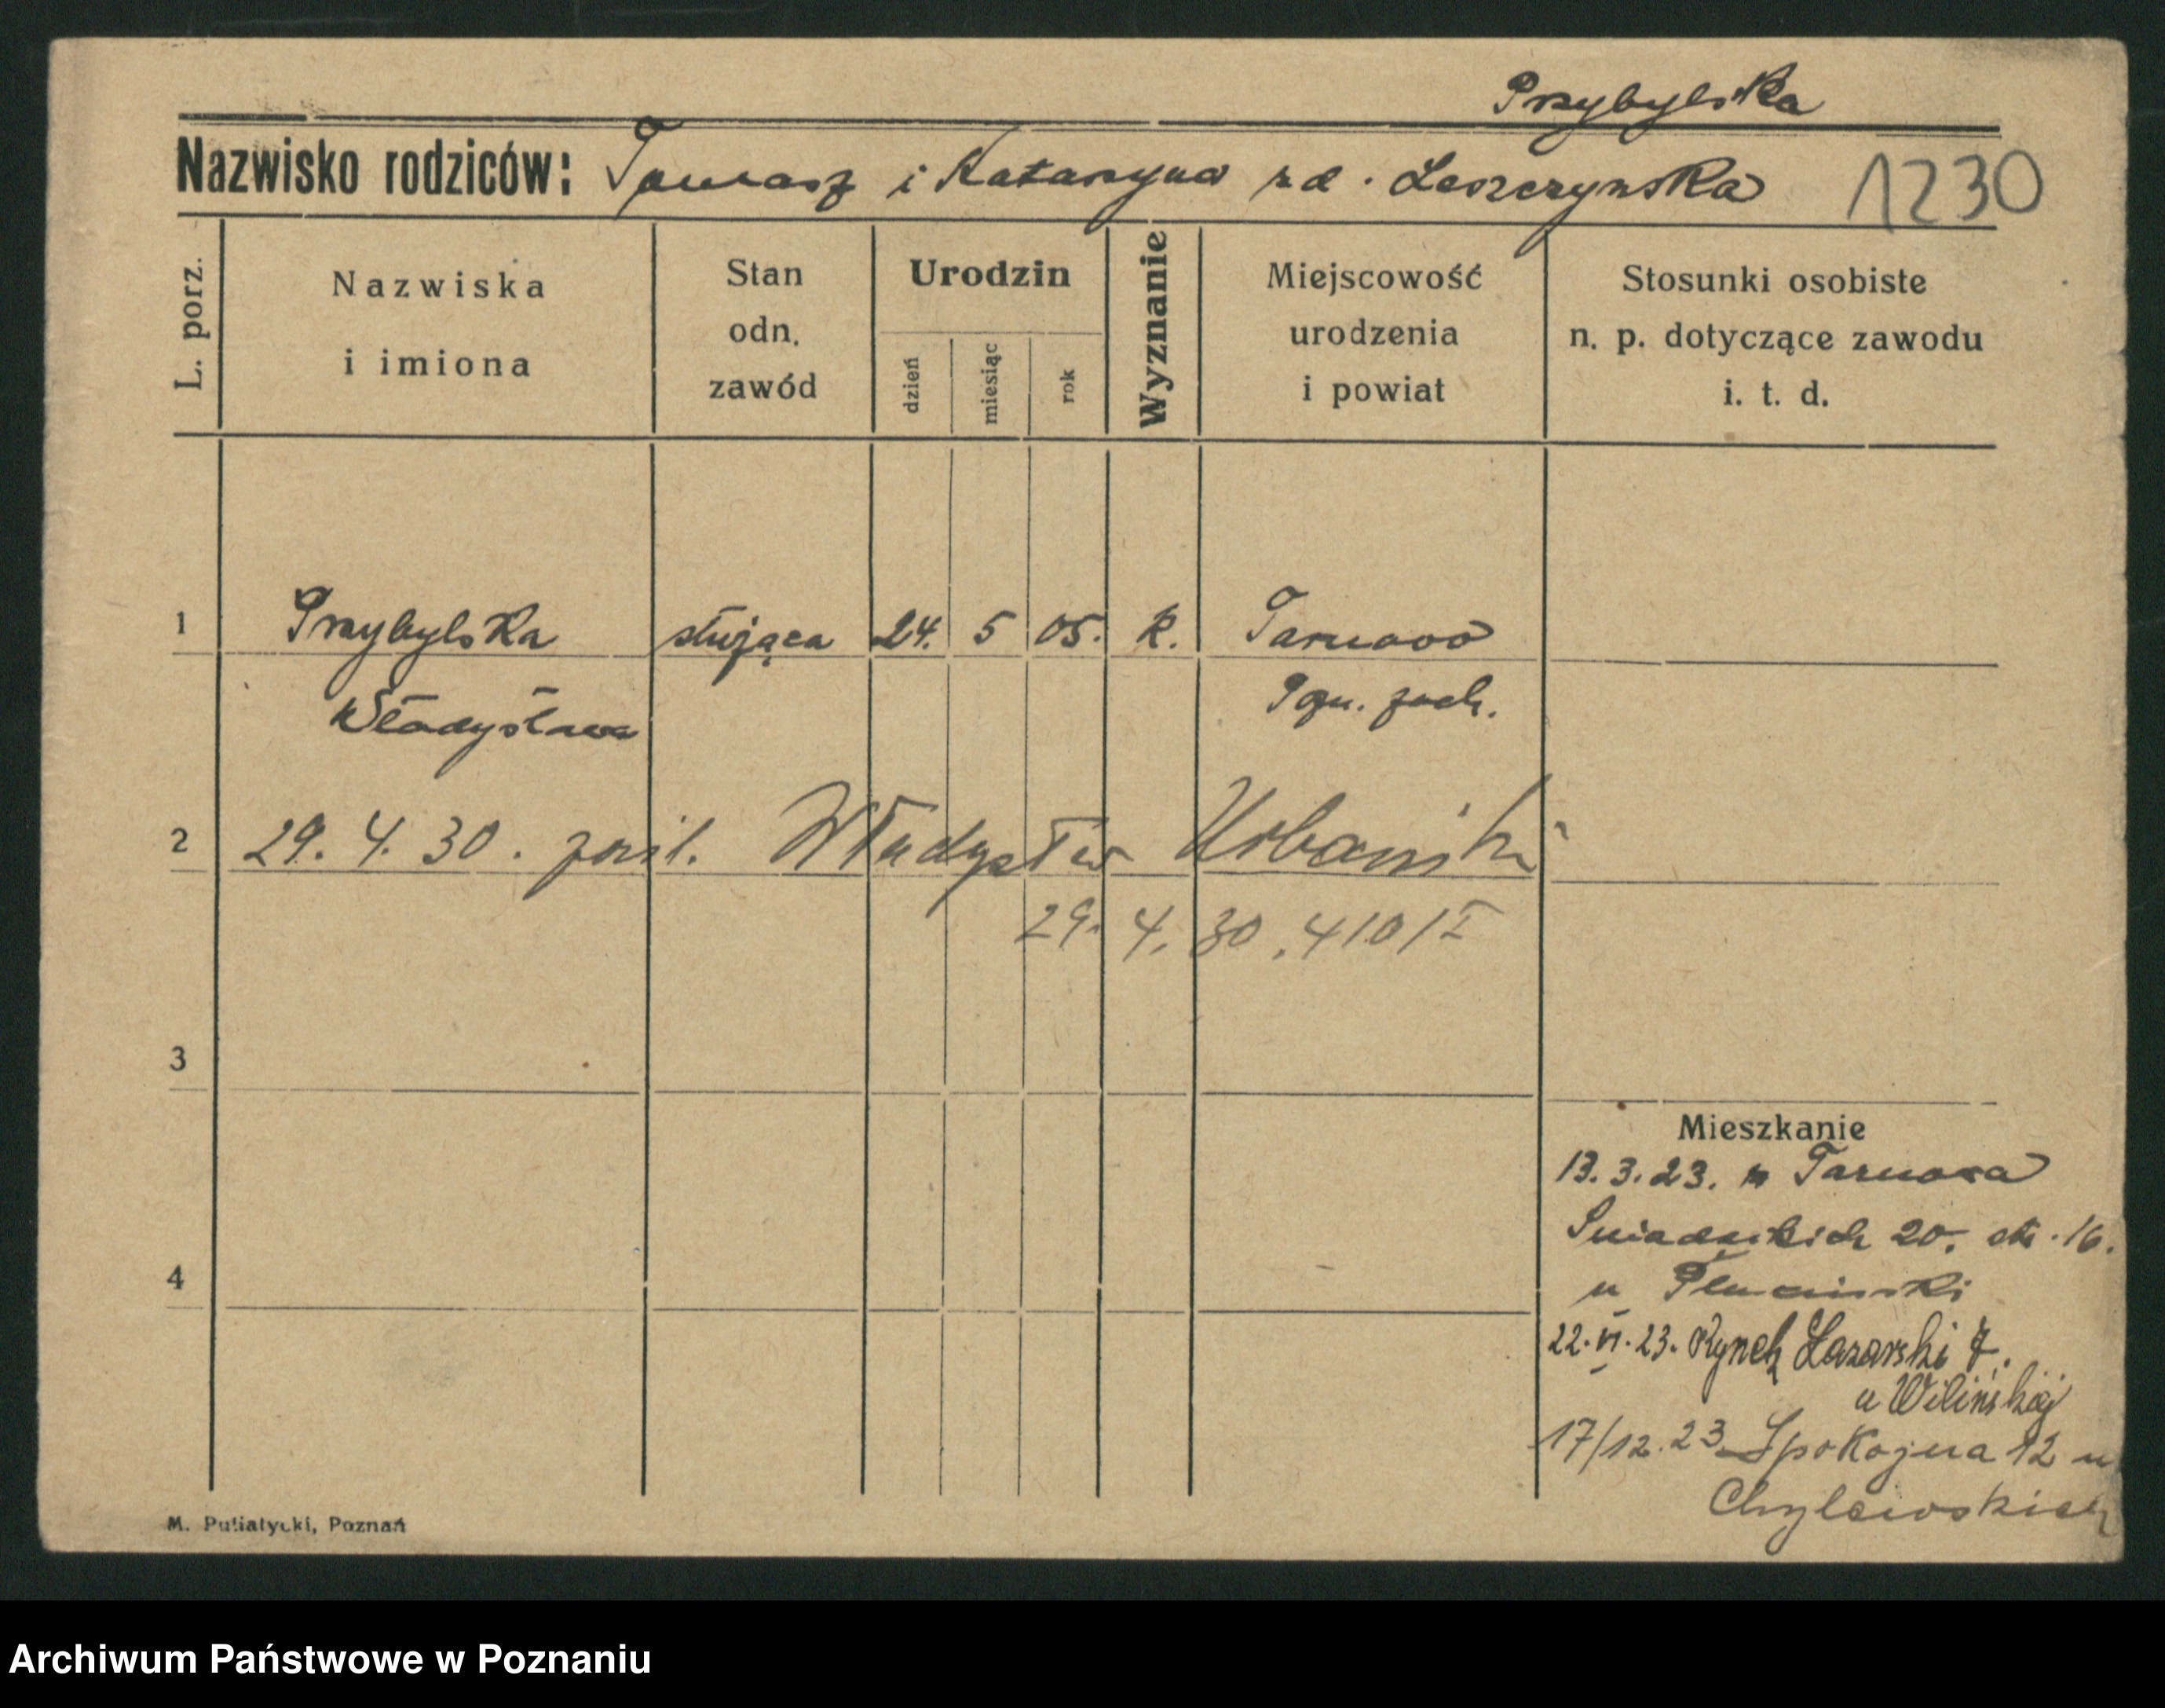 Przybylska
Nazwisko rodziców: Tomasz i Katarzyna zd. Leszczynska 1230
L. porz.
Nazwiska
i imiona
Stan
odn.
zawód
Urodzin
dzień
miesiąc
rok
Wyznanie
Miejscowość
urodzenia
i powiat
Stosunki osobiste
n. p. dotyczące zawodu
i. t. d.
1 Przybylska służąca 24. 5 05. k. Tarnowo
Władysława Pozn. zach.
2 29. 4. 30. Władysław Urbański
29. 4. 30. 410/I
3
Mieszkanie
13. 3. 23. Tarnowa
4 Śniadeckich 20. 16.
u
22. VI. 23. Rynek Łazarski 7.
u Wilińskiej
17/12. 23 Spokojna 12 u
Chylewskich
M. Putiatycki, Poznań
Archiwum Państwowe w Poznaniu